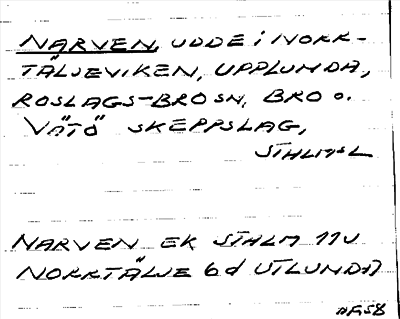 NARVEN, UDDE i NORR-
TÄLJEVIKEN, UPPLUNDA,
ROSLAGS-BRO SN, BRO O.
VÄTÖ SKEPPSLAG,
STHLMSL
NARVEN EK STHLM 11V
NORRTÄLJE 6d UTLUNDA